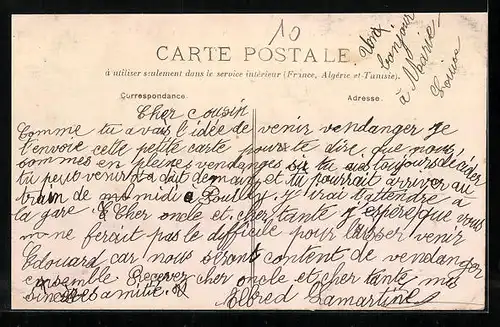 10
Voix bonjour
à Marie
Louise
CARTE POSTALE
à utiliser seulement dans le service intérieur (France, Algérie et Tunisie).
Correspondance Adresse
Cher cousin
Comme tu avais l'idée de venir vendanger je
t'envoie cette petite carte pour te dire que nous
sommes en pleines vendanges si tu as toujours décider
tu peut venir demain et tu pourrait arriver au
train de midi a j'irai t'attendre à
la gare Cher oncle et cher tante j'espère que vous
ne ferait pas le difficile pour laisser venir
Edouard car nous serons content de vendanger
ensemble Recevez cher oncle et cher tante mes
sincères amitié
Alfred Lamartine